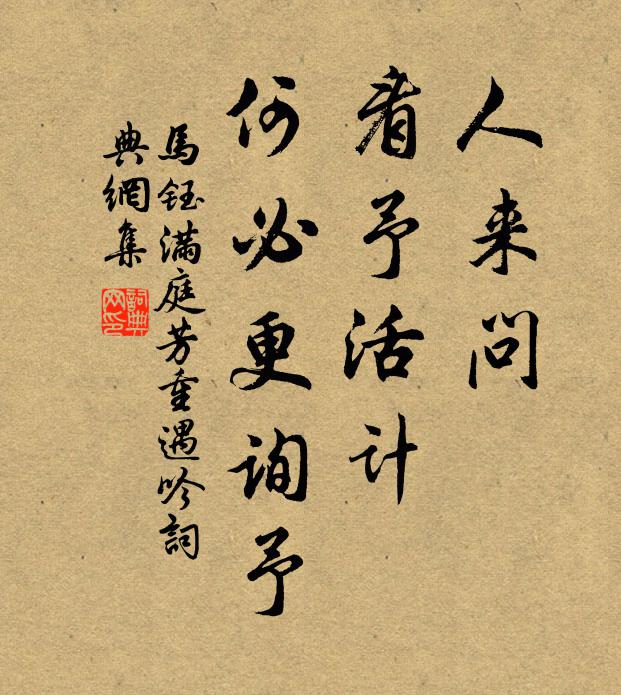 人来问
看予活计
何必更询予
馬鈺滿庭芳重遇吟詞
典網集
詞典
网印